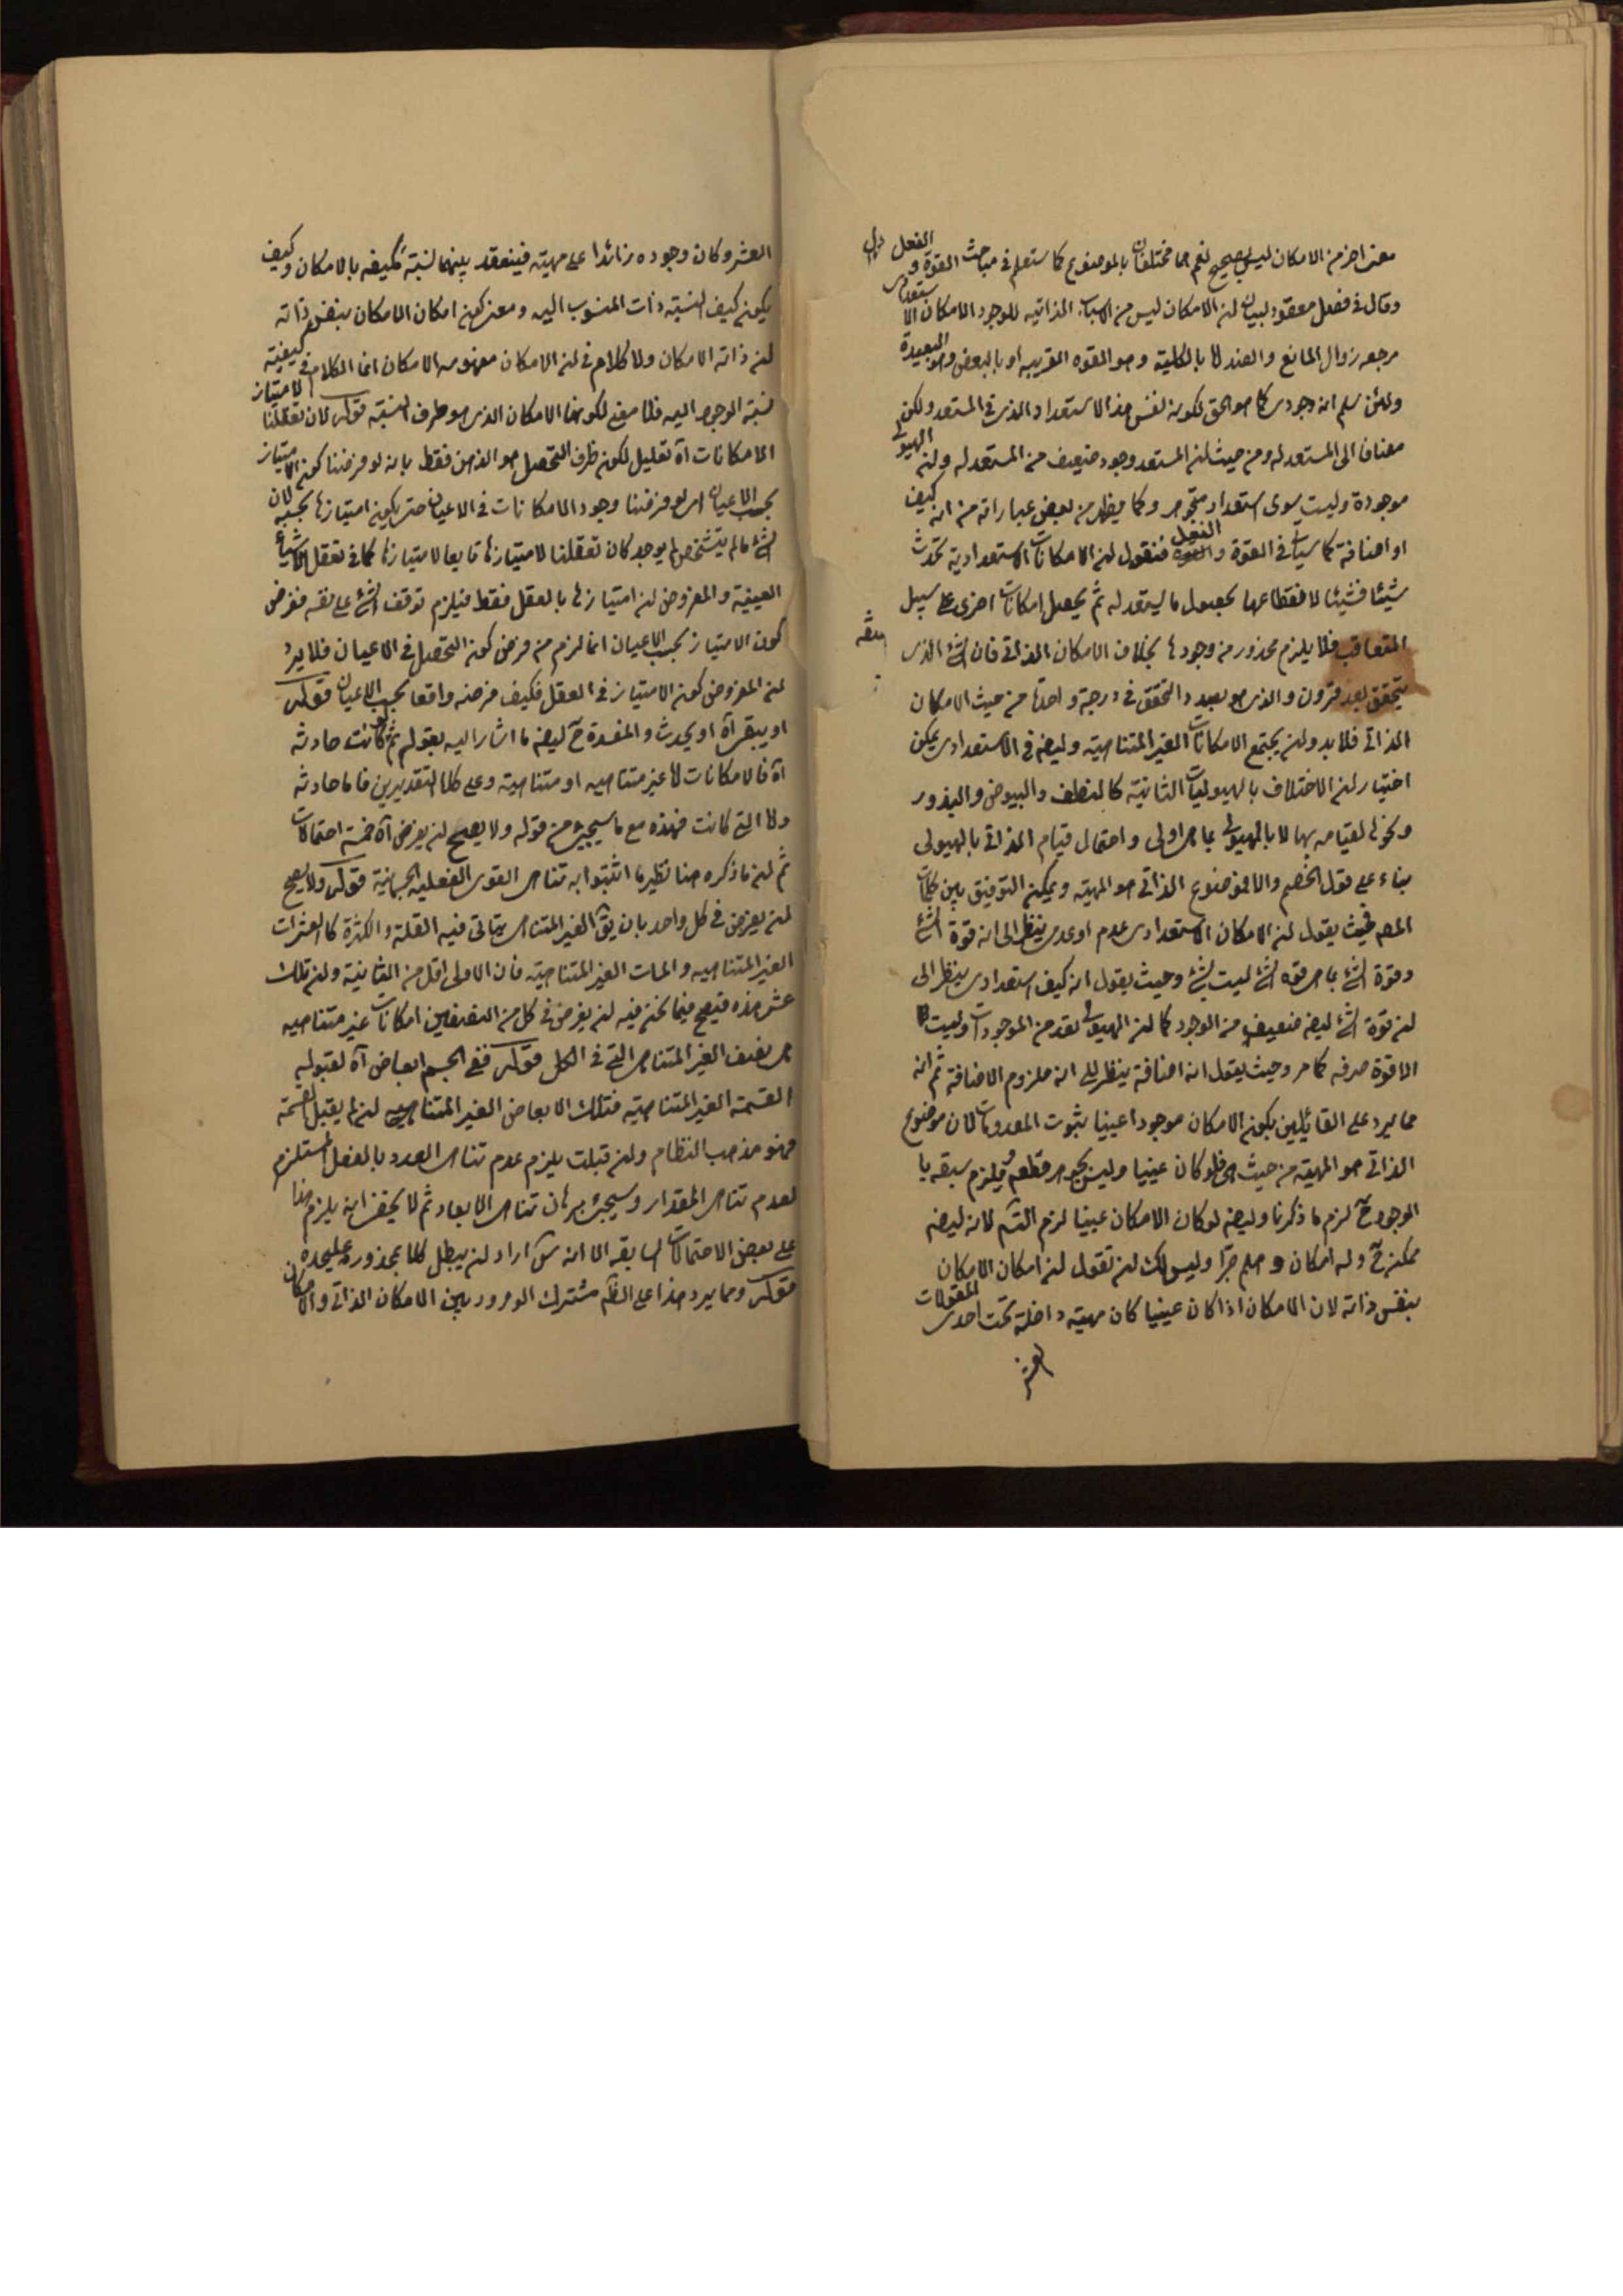 معنى اخر من الامكان ليس بصحيح نعم هما مختلفان بالموضوع كما ستعلم في مباحث القوة و الفعل
وقال في فصل معقود لبيان ان الامكان ليس من الاسباب الذاتيه للوجود الامكان الاستعدادى
مرجعه زوال المانع والضد لا بالكلية وهو القوه القريبه او بالبعض وهو البعيدة
ولئن سلم انه وجودى كما هو الحق لكونه نفس هذا الاستعداد الذى في المستعد ولكن
مضاف الى المستعد له ومن حيث ان المستعد وجود ضعيف من المستعد له وان الهيولى
موجودة وليست سوى استعداد متجوهر وكما يظهر من بعض عباراته من انه كيف
او اضافة كما سيأتى في القوة والفعل فنقول ان الامكانات الاستعدادية تحدث
شيئا فشيئا لانقطاعها بحصول ما يستعد له ثم يحصل امكانات اخرى على سبيل
التعاقب فلا يلزم محذور من وجودها بخلاف الامكان الذاتى فان الشئ الذى
يتحقق بعد قرون والذى هو بصدد التحقق في درجة واحدة من حيث الامكان
الذاتى فلابد وان يجتمع الامكانات الغير المتناهية وايضه في الاستعدادى يمكن
اختيار ان الاختلاف بالهيوليات الثانية كالنطف والبيوض والبذور
ونحوها لقيامه بها لا بالهيولى بما هى اولى واحتمال قيام الذاتى بالهيولى
بناء على قول الخصم والا فموضوع الذاتى هو المهية ويمكن التوفيق بين كلمات
المصه فحيث يقول ان الامكان الاستعدادى عدم او عدمى ينظر الى انه قوة الشئ
وقوة الشئ بما هى قوه الشئ ليست بشئ وحيث يقول انه كيف استعدادى ينظر الى
ان قوة الشئ ايضه ضعيف من الوجود كما ان الهيولى تعد من الموجودات وليست
الا قوة صرفه كما مر وحيث يقول انه اضافة ينظر الى انه ملزوم الاضافة ثم انه
مما يرد على القائلين بكون الامكان موجودا عينيا ثبوت المعدومات لان موضوع
الذاتى هو المهية من حيث هى فلو كان عينيا وليس بجوهر قطعا ويلزم سبقه با
الوجود ح لزم ما ذكرنا وايضه لو كان الامكان عينيا لزم التس لانه ايضه
ممكن ح وله امكان و هلم جرا وليس لك ان تقول ان امكان الامكان
بنفس ذاته لان الامكان اذا كان عينيا كان مهية داخلة تحت احدى المقولات
العشر
العشر وكان وجوده زائدا على مهيته فينعقد بينهما نسبة مكيفه بالامكان وكيف
يكون كيف النسبة ذات المنسوب اليه ومعنى كون امكان الامكان بنفس ذاته
ان ذاته الامكان ولا كلام في ان الامكان مفهومه الامكان انما الكلام في كيفية
نسبة الوجود اليه فلا معنى لكونها الامكان الذى هو طرف النسبة قوله لان تعقلنا لامتياز
الامكانات اه تعليل لكون ظرف التحصل هو الذهن فقط بانه لو فرضنا كون الامتياز
بحسب الاعيان اى لو فرضنا وجود الامكانات في الاعيان حتى يكون امتيازها بحسبه لان
الشئ مالم يتشخص لم يوجد كان تعقلنا لامتيازها تابعا لامتيازها كما في تعقل الاشياء
العينية والمفروض ان امتيازها بالعقل فقط فيلزم توقف الشئ على نفسه ففرض
كون الامتياز بحسب الاعيان انما لزم من فرض كون التحصل في الاعيان فلا يرد
ان المفروض كون الامتياز في العقل فكيف فرضه واقعا بحسب الاعيان قوله
او يبقى اه او يحدث والمفسدة ح ايضه ما اشار اليه بقوله ثم لو كانت حادثه
اه فالامكانات لها غير متناهيه او متناهية وعلى كلا التقديرين فاما حادثه
ولا التى كانت فهذه مع ما سيجئ من قوله ولا يصح ان يفرض اه خمسة احتمالات
ثم ان ما ذكره هنا نظير ما اثبتوا به تناهى القوى الفعليه الجسمانية قوله ولا يصح
ان يفرض في كل واحد بان يق الغير المتناهى يتاتى فيه القلة والكثرة كالعشرات
الغير المتناهيه والمات الغير المتناهية فان الاولى اقل من الثانية وان تلك
عشر هذه فيصح فيما نحن فيه ان يفرض في كل من النصفين امكانات غير متناهيه
هى نصف الغير المتناهى التى في الكل قوله ففى الجسم ابعاض اه لقبوله
القسمة الغير المتناهية فتلك الابعاض الغير المتناهيه ان لم يقبل القسمة
فهو مذهب النظام وان قبلت يلزم عدم تناهى العدد بالفعل المستلزم
لعدم تناهى المقدار وسيجئ برهان تناهى الابعاد ثم لا يخفى انه يلزم هذا
على بعض الاحتمالات السابقه الا انه س اراد ان يبطل كلا بمحذور عليحده
قوله ومما يرد هذا على الظ مشترك الورود بين الامكان الذاتى والامكان